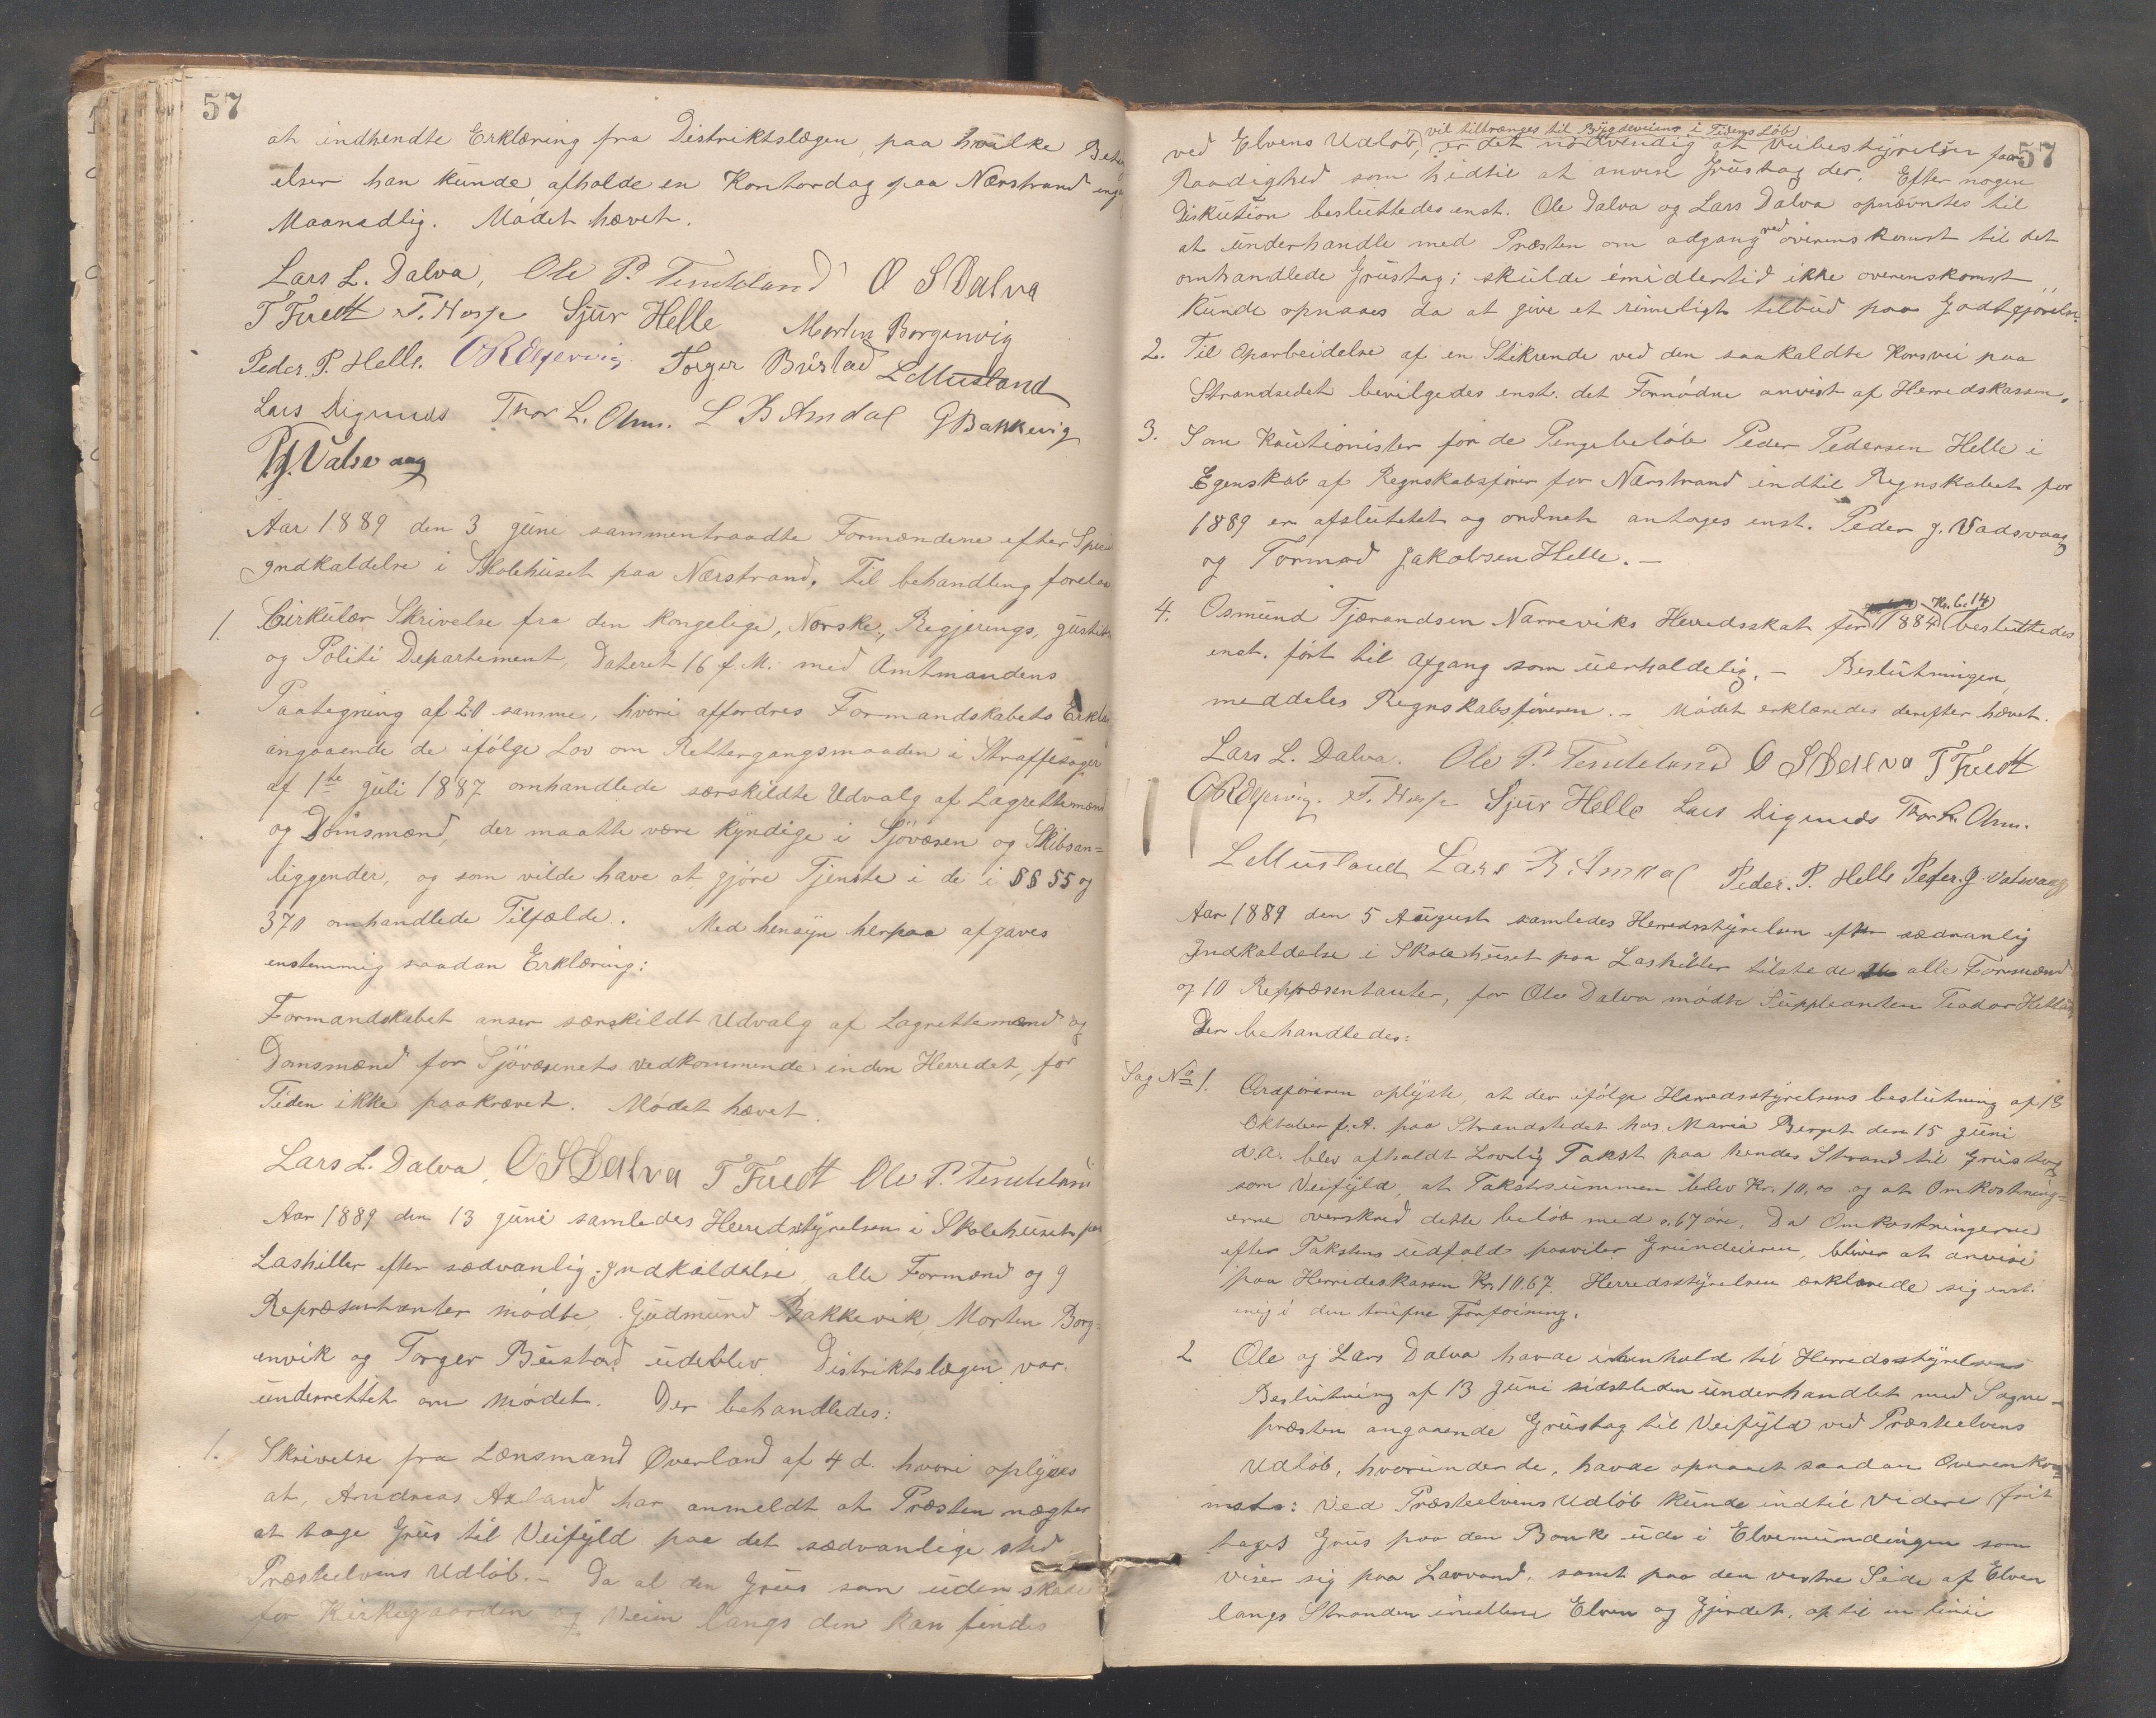 57
at indhendte Erklæring fra Distriktslægen, paa hvilke
elser han kunde afholde en Kontordag paa Nærstrand
Maanedlig. Mødet hævet.
Lars L. Dalva, Ole P. Tendeland O S Dalva
T Tuedt Sjur Helle Morten Borgenvig
Peder P. Helle. Torger Bustad L Musland
Lars Thor L. L B Amdal G Bakkevig
P. J. Valsvaag
Aar 1889 den 3 Juni sammentraadte Formændene efter
Indkaldelse i Skolehuset paa Nærstrand. Til behandling forelaa
1. Cirkulær Skrivelse fra den kongelige, Norske, Regjerings, Justits
og Politi Departement, Dateret 16 f. M. med Amtmandens
Paategning af 20 samme, hvori affordres Formandskabets
angaaende de ifølge Lov om Rettergangsmaaden i Straffesager
af 1te Juli 1887 omhandlede særskildte Udvalg af Lagrettemænd
og Domsmænd, der maatte være kyndige i Sjøvæsen og Skibsan=
liggender, og som vilde have at gjøre Tjenste i de i §§ 55 og
370 omhandlede Tilfælde. Med hensyn herpaa afgaves
enstemmig saadan Erklæring:
Formandskabet anser særskildt Udvalg af Lagrettemænd og
Domsmænd for Sjøvæsenets vedkommende inden Herredet, for
Tiden ikke paakrævet. Mødet hævet.
Lars L. Dalva, O S Dalva T Tuedt Ole P. Tendeland
Aar 1889 den 13 Juni samledes Herredsstyrelsen i Skolehuset paa
Lashiller efter sædvanlig Indkaldelse alle Formænd og 9
Repræsentanter mødte, Gudmund Bakkevik, Morten Borg=
envik og Torger Bustad udeblev. Distriktslægen var
underrettet om mødet. Der behandledes:
1. Skrivelse fra Lænsmand Øverland af 4 d. hvori oplyses
at, Andreas Axland har anmeldt at Præsten nægter
at tage Grus til Veifyld paa det sædvanlige sted
Præsteelvens Udløb. - Da al den Grus som uden skade
for Kirkegaarden og Veien langs den kan findes
57
vil tiltrænges til Bygdeveiens i Tidens Løb
ved Elvens Udløb, er det nødvendig at Veibestyrelsen faar
Raadighed som hidtil at anvise Grustag der. Efter nogen
Diskution besluttedes enst. Ole Dalva og Lars Dalva opnævntes til
at underhandle med Præsten om adgang ved overenskomst til det
omhandlede Grustag; skulde imidlertid ikke overenskomst
kunde opnaaes da at give et rimeligt tilbud paa Godtgjørelse.
2. Til oparbeidelse af en Stikrende ved den saakaldte Korsvei paa
Strandsedet bevilgedes enst. det Fornødne anvist af Herredskassen.
3. Som Kautionister for de Pengebeløb Peder Pedersen Helle i
Egenskab af Regnskabsfører for Nærstrand indtil Regnskabet for
1889 er afsluttet og ordnet antages enst. Peder J. Vadsvaag
og Tormod Jakobsen Helle. -
Kr. 6.14
4. Osmund Tjærandsen Narreviks Herredsskat for 1884 besluttedes
enst. ført til Afgang som uerholdelig. - Beslutningen
meddeles Regnskabsføreren. - Mødet erklæredes derefter hævet.
Lars L. Dalva. Ole P. Tendeland O S Dalva T Tuedt
Sjur Helle Lars Thor L.
L Musland Lars B. Amdal Peder. P. Helle Peder. J. Valsvaag
Aar 1889 den 5 August samledes Herredsstyrelsen efter sædvanlig
Indkaldelse i Skolehuset paa Lashiller tilstede alle Formænd
og 10 Repræsentanter, for Ole Dalva mødte Suppleanten Teodor
Der behandledes:
Sag No 1. Ordføreren oplyste, at der ifølge Herredsstyrelsens beslutning af 18
Oktober f. A. paa Strandstedet hos Maria Berget den 15 Juni
d.a. blev afholdt Lovlig Takst paa hendes Strand til Grustag
som Veifyld, at Takstsummen blev Kr. 10,00 og at Omkostning=
erne overskred dette beløb med 0.67 øre. Da Omkostningerne
efter Takstens udfald paaviler Grundeieren, bliver at anvise
paa Herredeskassen Kr. 10.67. Herredsstyrelsen erklærede sig enst.
enig i den trufne Forføining.
2 Ole og Lars Dalva havde i henhold til Herredsstyrelsens
Beslutning af 13 Juni sidstleden underhandlet med Sogne=
præsten angaaende Grustag til Veifyld ved Præsteelvens
Udløb, hvorunder de, havde opnaaet saadan Overensko=
mst: Ved Præsteelvens Udløb kunde indtil Videre frit
tages Grus paa den Bank ude i Elvemundingen som
viser sig paa Lavvand, samt paa den vestre Side af Elven
langs Stranden imellem Elven og Gjerdet, op til en linie